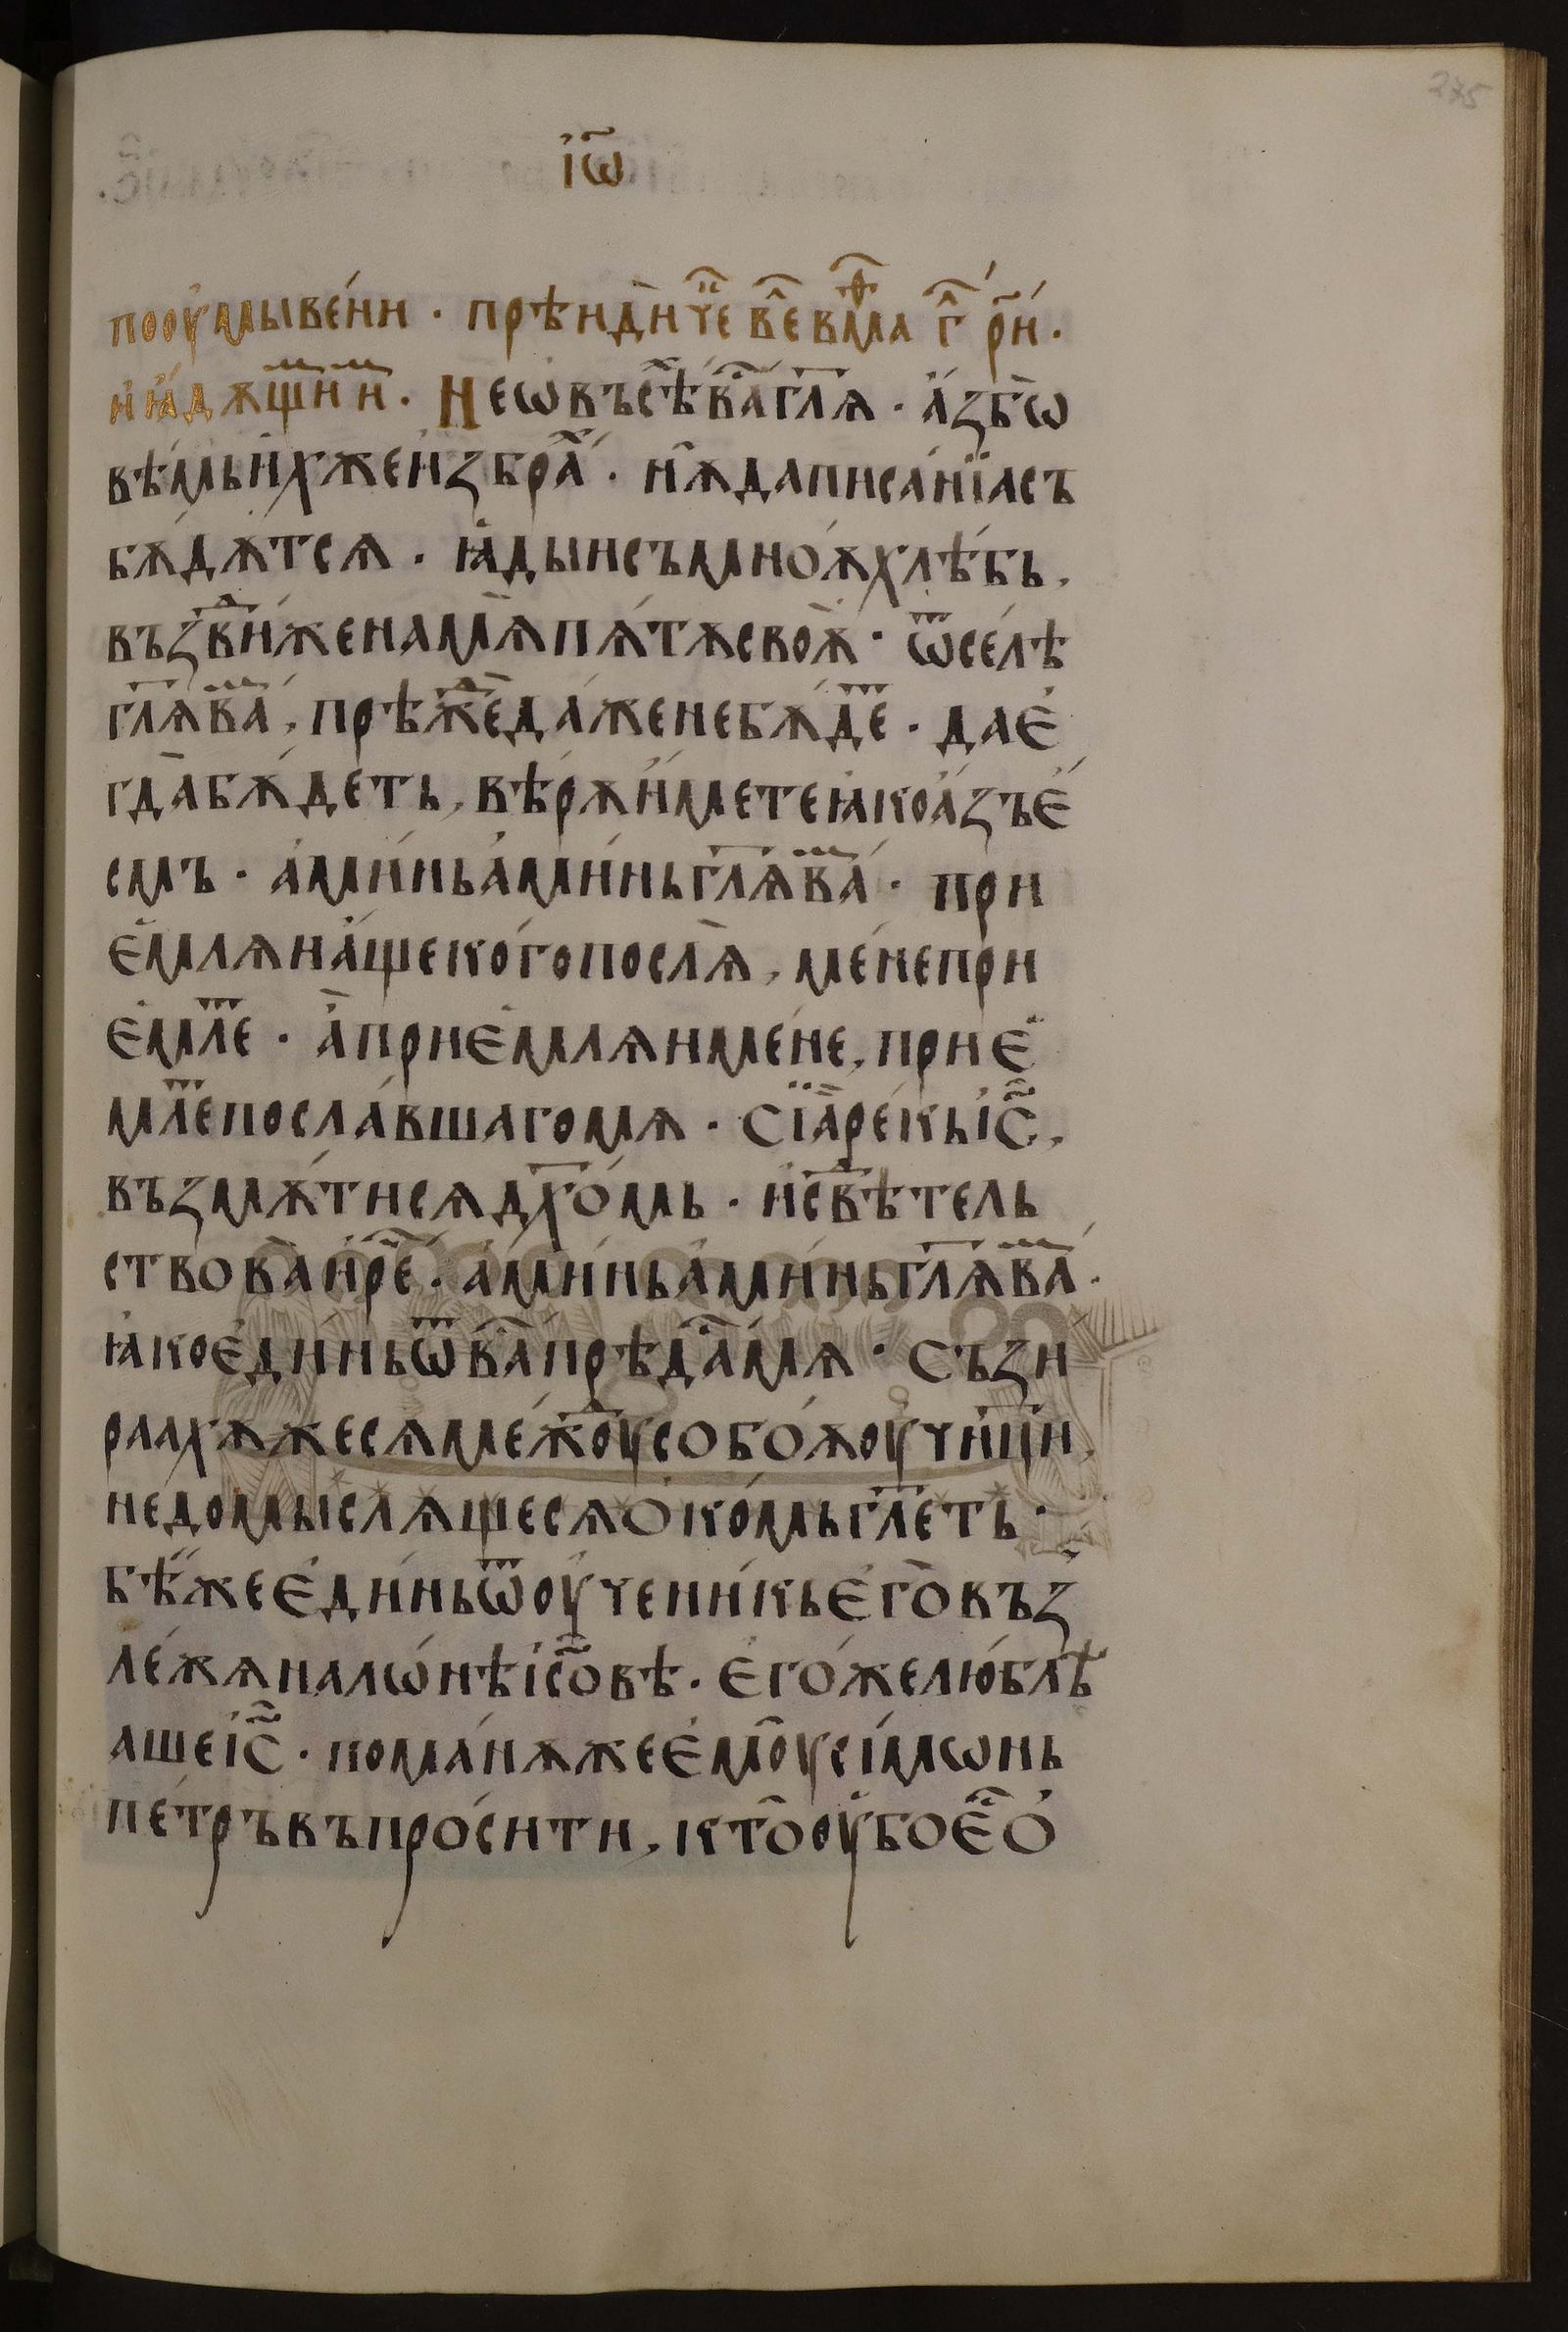 275
і҆ѡ҃
поᲂу҆мыве́нїи · прѣиди ч҇е в̑ е в мⷴ҇а г҃ рⷩ҇ и́ ·
и꙳ꙗ҆́дѫщиⷨ и · Не ѡ҆ въсѣⷯ ваⷭ҇ гл҃ѧ · а҆́з бѡ
вѣ́мь и҆́хже и҆збра́ⷯ · нѫ̑ да писа́нїа съ
бѫ́дѫтсѧ · ꙗ҆ды̀и съ мно́ѫ хлѣ́бь,
въздви́же на мѧ̀ пѧ́тѫ своѫ̀ · ѿсе́лѣ
гл҃ѧ ваⷨ҇, прѣжⷣе да́же не бѫ́деⷮ · да є҆
гда̀ бѫ́деть, вѣ́рѫ и҆́мете ꙗ҆ко а҆́зъ є҆́
смъ · а҆ми́нь а҆ми́нь гл҃ѧ ваⷨ · при
є҆́млѧи а҆́ще кого̀ послѧ̀, ме́не при
є҆́млеⷮ · а҆̀ прие҆́млѧи ме́не, прие҆́
млеⷮ посла́вшаго мѧ · Сїа̀ ре́кь і҆с҃,
възмѫ́тисѧ дх҃о́мь · и҆ свⷣѣтель
ствова̀ и҆ рⷱ҇е · а҆ми́нь а҆ми́нь гл҃ѧ ваⷨ ·
ꙗ҆ко є҆ди́нь ѿ ваⷭ҇ прѣда́ⷭ҇ мѧ · Съзи
раахѫ́ же сѧ междᲂу̀ собо́ѫ ᲂу҆ч҃ни́ци,
недомы́слѧще сѧ о҆ ко́мь гл҃еть ·
бѣ́ же є҆ди́нь ѿ ᲂу҆чени́кь є҆го̀ въз
ле́жѧ на ло́нѣ і҆с҃овѣ · є҆го́же лю́блѣ
аше і҆с҃ · пома́нѫ же є҆мᲂу̀ сі́мѡнь
пе́тръ въпро́сити, кто̀ ᲂу҆́бо є҆ⷭ҇ о҆